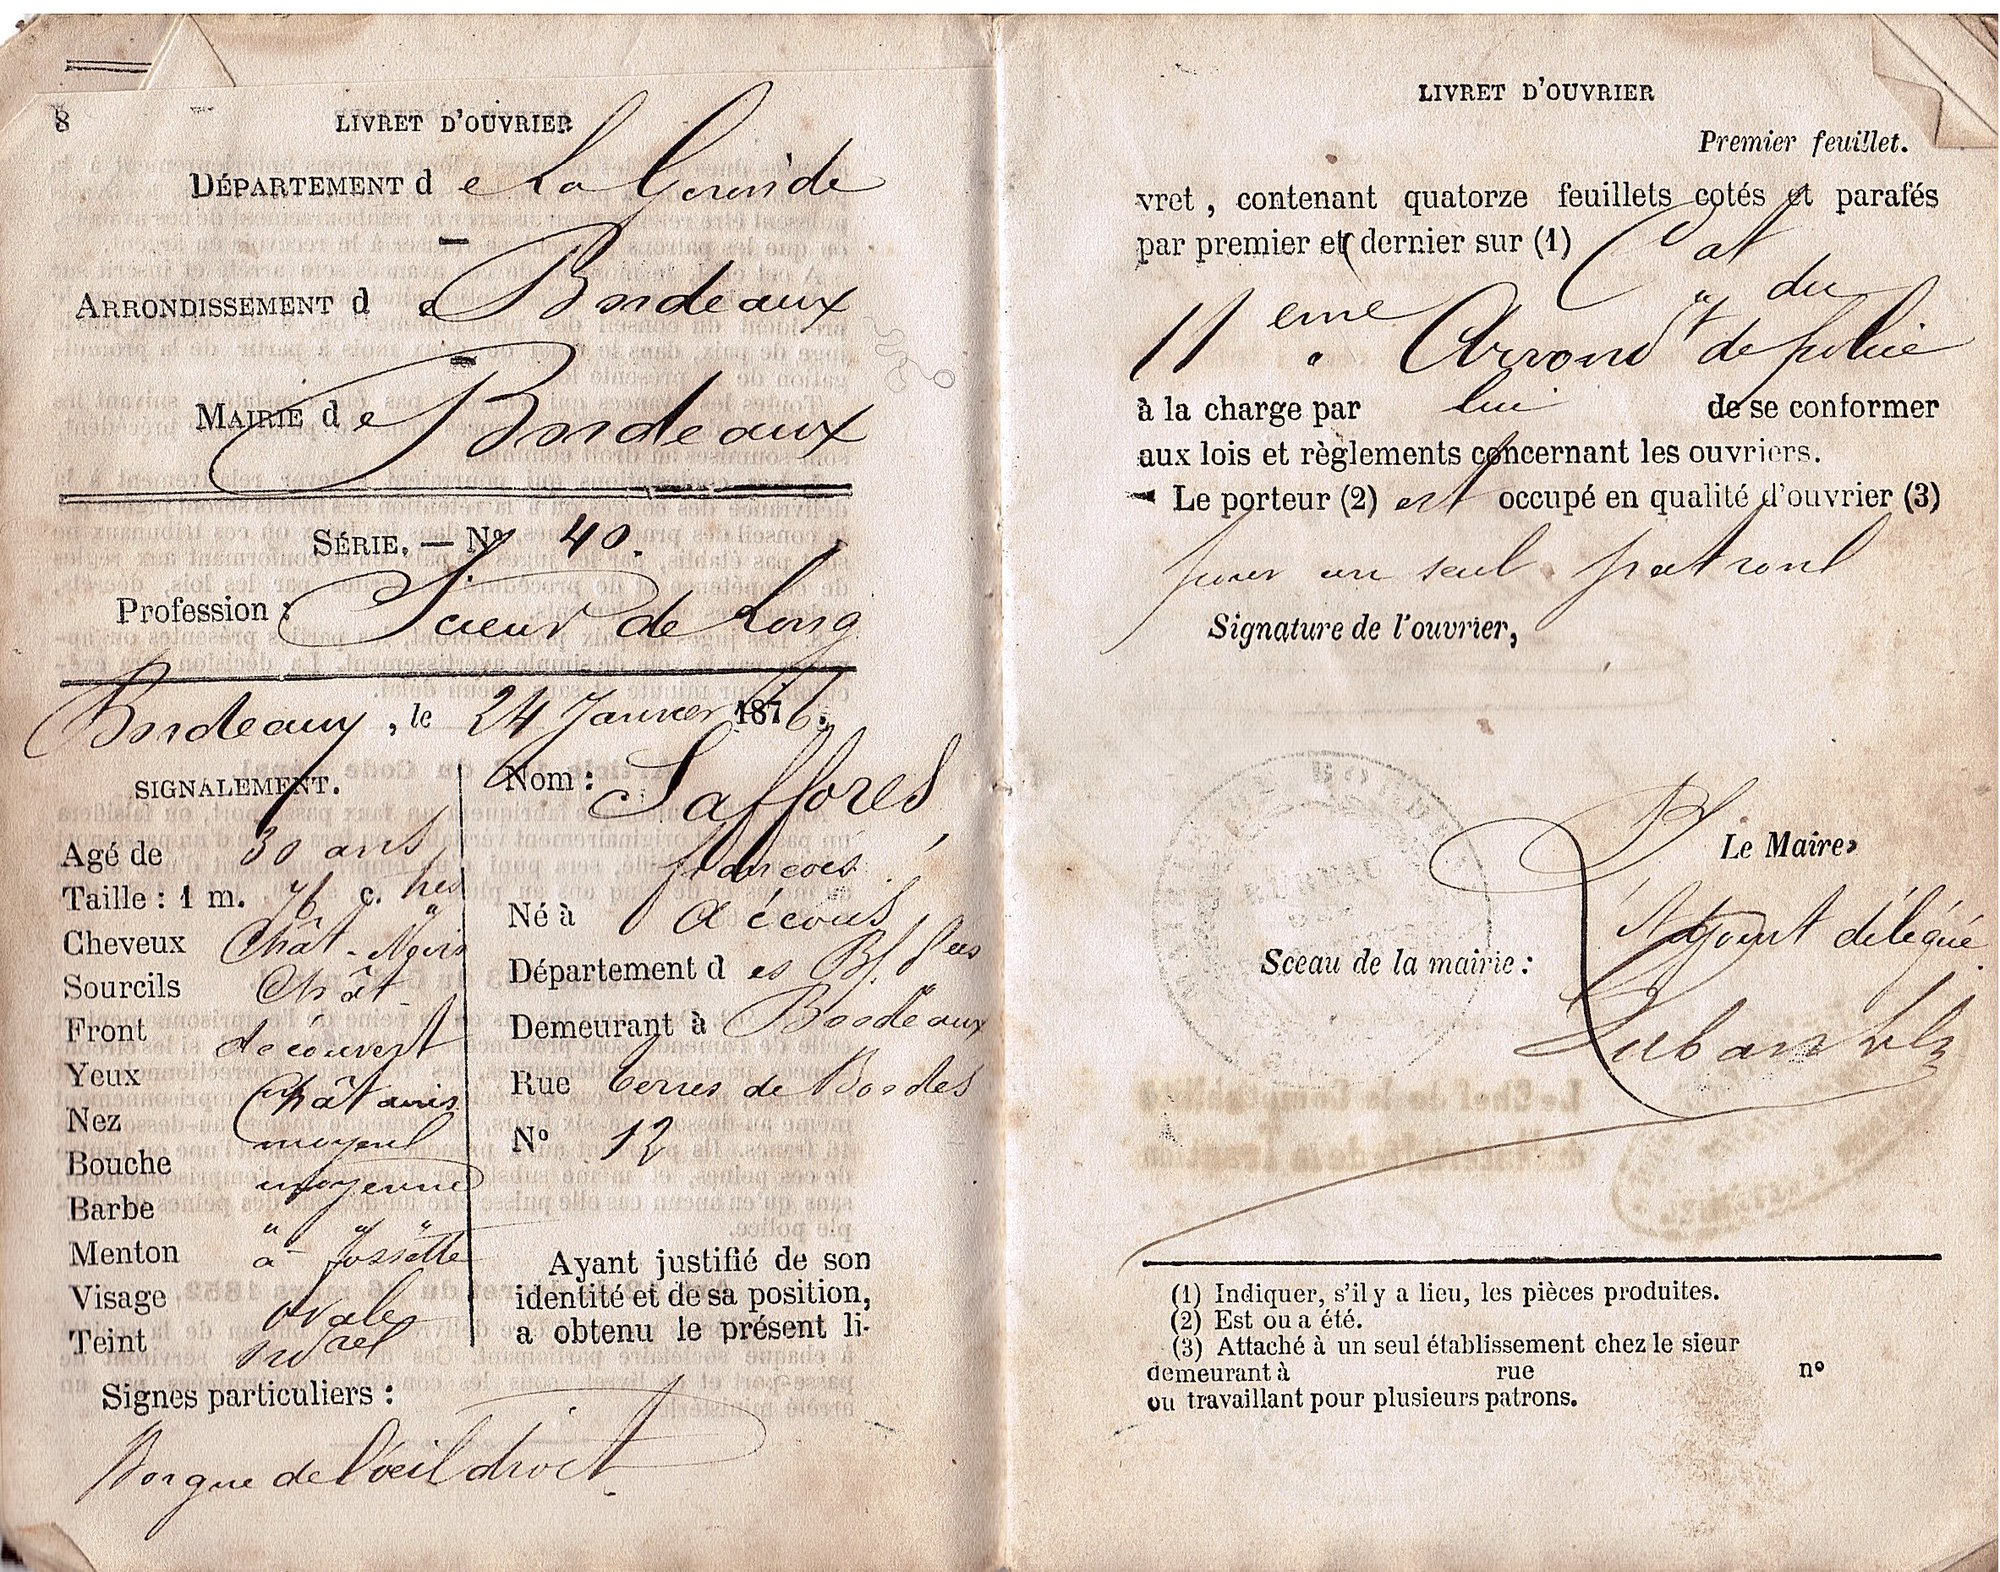 8
LIVRET D'OUVRIER
DÉPARTEMENT d e La Gironde
ARRONDISSEMENT d e Bordeaux
MAIRIE d e Bordeaux
SÉRIE. — No 40.
Profession : Scieur de Long
Bordeaux, le 24 Janvier 187
SIGNALEMENT.
Agé de 30 ans
Taille : 1 m. 76 c. hes
Cheveux Chât-Noirs
Sourcils Chât
Front découvert
Yeux Chât
Nez moyen
Bouche moyenne
Barbe " " "
Menton à fossette
Visage ovale
Teint
Signes particuliers :
Borgne de l'œil droit.
Nom : Laffores
françois
Né à accous
Département d es Bs. Pées
Demeurant à Bordeaux
Rue terres de Bordes
No 12
Ayant justifié de son
identité et de sa position,
a obtenu le présent li-
LIVRET D'OUVRIER
Premier feuillet.
vret, contenant quatorze feuillets cotés et parafés
par premier et dernier sur (1) Cat du
11 eme Arrond t de police
à la charge par lui de se conformer
aux lois et règlements concernant les ouvriers.
Le porteur (2) est occupé en qualité d'ouvrier (3)
pour un seul patron
Signature de l'ouvrier,
Le Maire,
Adjoint délégué
Sceau de la mairie :
(1) Indiquer, s'il y a lieu, les pièces produites.
(2) Est ou a été.
(3) Attaché à un seul établissement chez le sieur
demeurant à rue no
ou travaillant pour plusieurs patrons.